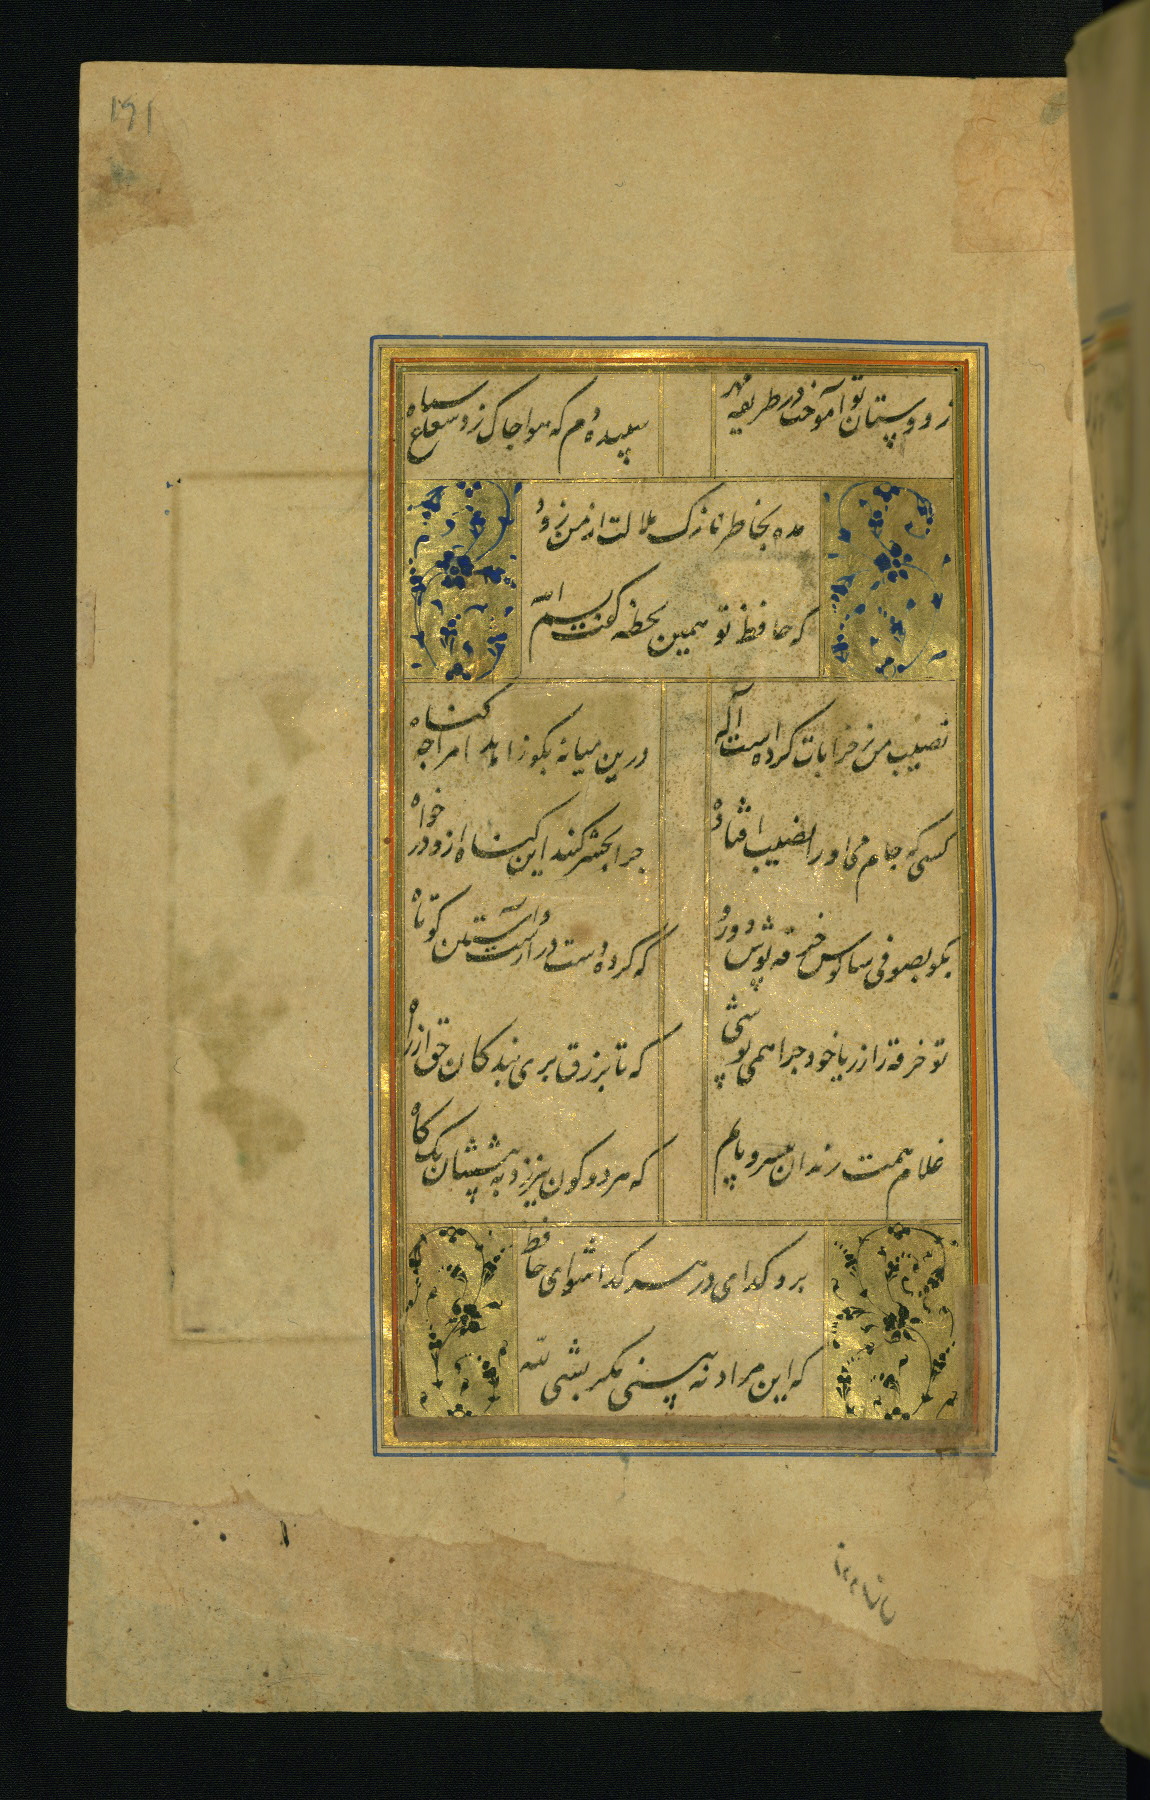 ۱۹۱
ز دوستان تو آموخت در طریقه مهر
سپیده دم که هوا چاک زد شعار سیاه
مده بخاطر نازک ملالت از من زود
که حافظ تو همین لحظه گفت بسم الله
نصیب من ز خرابات کرده است آله
درین میانه بکو زاهدا مرا چه کناه
کسی که جام می او را نصیب افتاد
چرا بحشر کنند این کناه ازو در خواه
بکو بصوفی سالوس خرقه پوش دو رو
که کرده دست دراز و آستین کوتاه
تو خرقه را ز ریا خود چرا همی پوشی
که تا بزرق بری بندکان حق از راه
غلام همت رندان بی سر و پایم
که هر دو کون نیرزد به پیششان یک کاه
برو کدای در هر کدا شو ای حافظ
که این مراد نه بینی مکر بشی لله